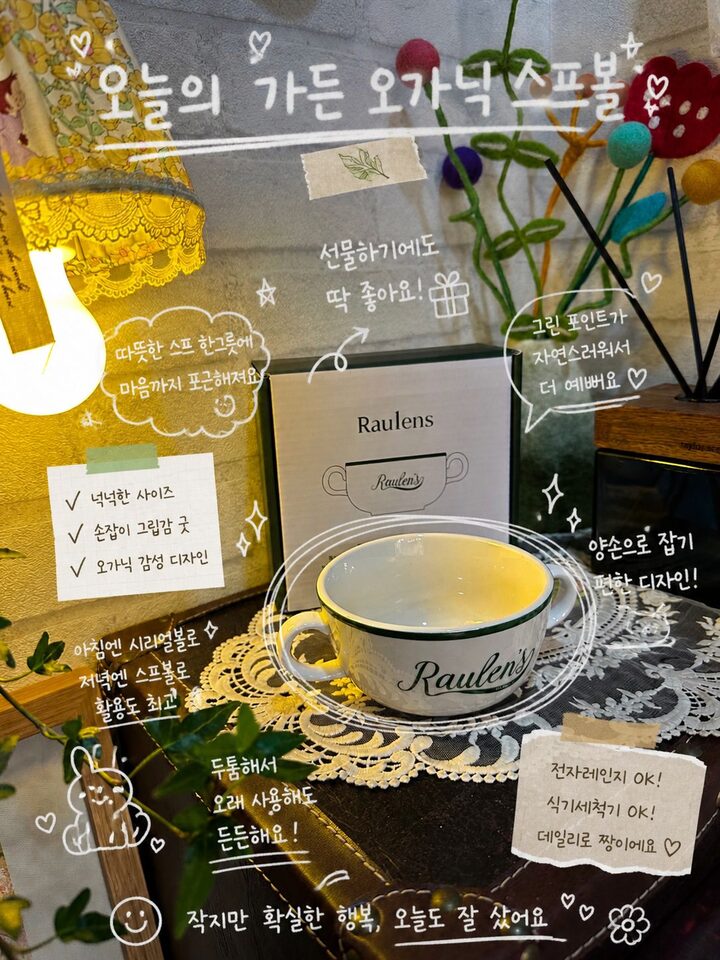 오늘의 가든 오가닉 스프볼
선물하기에도
딱 좋아요!
따뜻한 스프 한그릇에
마음까지 포근해져요
그린 포인트가
자연스러워서
더 예뻐요
Raulens
Raulen's
✓ 넉넉한 사이즈
✓ 손잡이 그립감 굿
✓ 오가닉 감성 디자인
양손으로 잡기
편한 디자인!
Raulen's
아침엔 시리얼볼로
저녁엔 스프볼로
활용도 최고
두툼해서
오래 사용해도
든든해요!
전자레인지 OK!
식기세척기 OK!
데일리로 짱이에요
작지만 확실한 행복, 오늘도 잘 샀어요